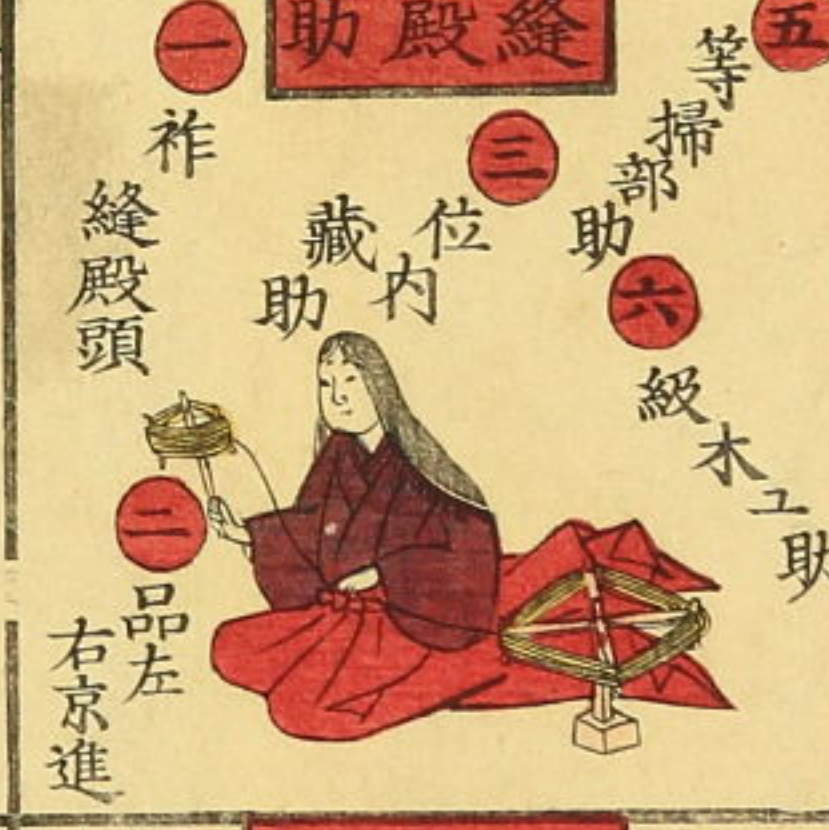 縫殿助
一
祚
縫殿頭
二
品左
右京進
三
位内
藏助
五
等掃部助
六
級木工助